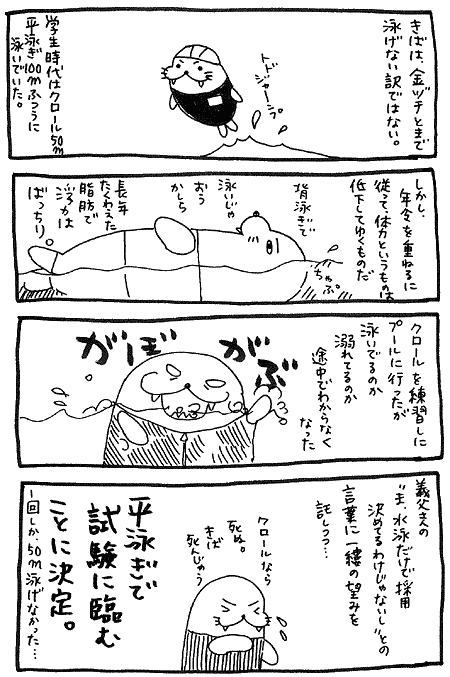 きばは、金ヅチとまで
泳げない訳ではない。
トド
ジャーンプ。
学生時代はクロール50m
平泳ぎ100mふつうに
泳いでいた。
しかし、
年令を重ねるに
従って、体力というものは
低下してゆくものだ
ちゃぷ。
背泳ぎで
泳いじゃ
おう
かしら
長年
たくわえた
脂肪で
浮力は
ばっちり。
クロールを練習しに
プールに行ったが
泳いでるのか
溺れてるのか
途中でわからなく
なった
がぶ
がぼ
義父さんの
“ま、水泳だけで採用
決めてるわけじゃないし”との
言葉に一縷の望みを
託しつつ…
クロールなら
死ぬ。
きば
死んじゃう
平泳ぎで
試験に臨む
ことに決定。
一回しか、50m泳げなかった…